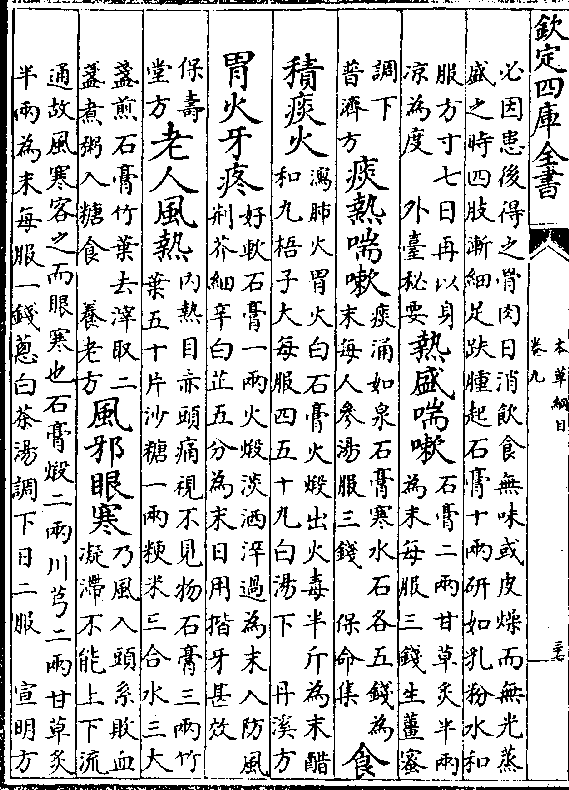 欽定四庫全書
本草綱目
卷九
必因患後得之骨肉日消飲食無味或皮燥而無光蒸
盛之時四肢漸細足趺腫起石膏十兩研如乳粉水和
服方寸七日再以身
涼為度　外臺秘要
熱盛喘嗽
石膏二兩甘草炙半兩
為末每服三錢生薑蜜
調下
普濟方
痰熱喘嗽
痰涌如泉石膏寒水石各五錢為
末每人參湯服三錢　保命集
食
積痰火
瀉肺火胃火白石膏火煅出火毒半斤為末醋
和丸梧子大每服四五十丸白湯下　丹溪方
胃火牙疼
好軟石膏一兩火煅淡酒淬過為末入防風
荆芥細辛白芷五分為末日用揩牙甚效
保壽
堂方
老人風熱
内熱目赤頭痛視不見物石膏三兩竹
葉五十片沙糖一兩粳米三合水三大
盞煎石膏竹葉去滓取二
盞煮粥入糖食　養老方
風邪眼寒
乃風入頭系敗血
凝滯不能上下流
通故風寒客之而眼寒也石膏煅二兩川芎二兩甘草炙
半兩為末每服一錢蔥白茶湯調下日二服　宣明方